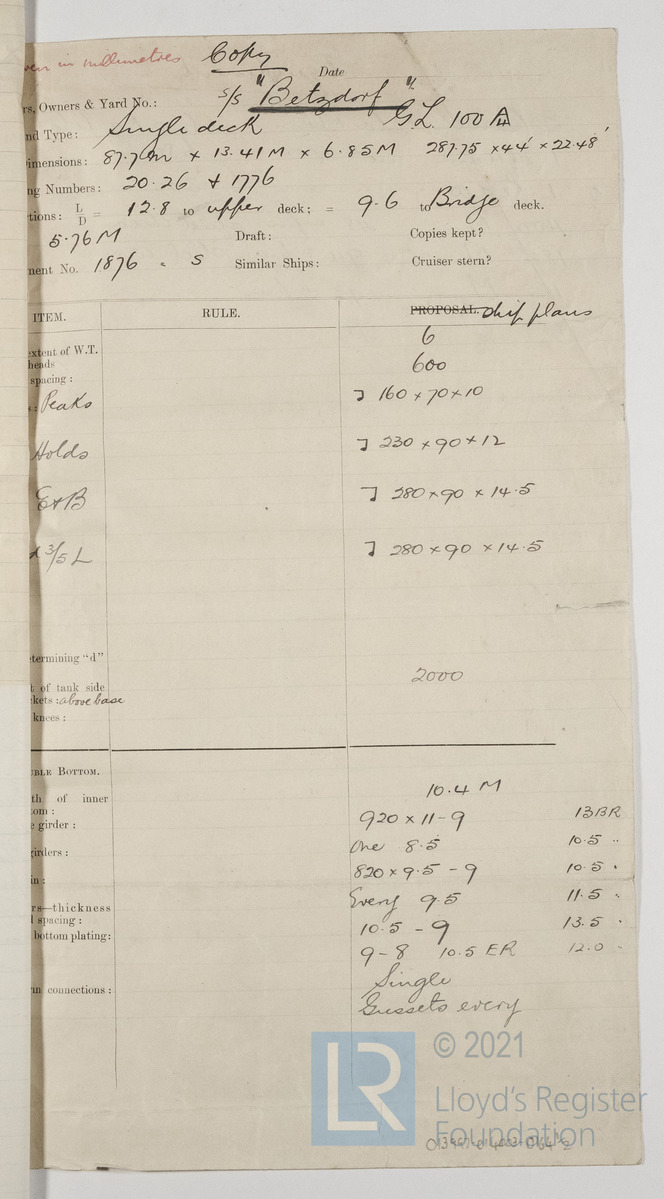 in millimetres Copy
Date
Owners & Yard No.: S/S "Betzdorf"
Type: Single deck G.L. 100 A
imensions: 87.7 M × 13.41 M × 6.85 M 287.75 × 44' × 22.48'
Numbers: 20.26 + 1776
tions: L/D = 12.8 to upper deck; = 9.6 to Bridge deck.
5.76 M Draft: Copies kept?
ment No. 1876 S Similar Ships: Cruiser stern?
ITEM. RULE. PROPOSAL. Ship plans
extent of W.T. 6
heads 600
spacing:
Peaks ] 160 × 70 × 10
Holds ] 230 × 90 × 12
E+B ] 280 × 90 × 14.5
3/5 L ] 280 × 90 × 14.5
termining "d"
of tank side 2000
kets: above base
knees:
BLE BOTTOM.
th of inner 10.4 M
tom:
girder: 920 × 11 - 9 13 BR
girders: One 8.5 10.5 "
in: 820 × 9.5 - 9 10.5 "
rs—thickness Every 9.5 11.5 "
spacing:
bottom plating: 10.5 - 9 13.5 "
9 - 8 10.5 ER 12.0 "
Single
connections: Gussets every
LR © 2021
Lloyd's Register
Foundation